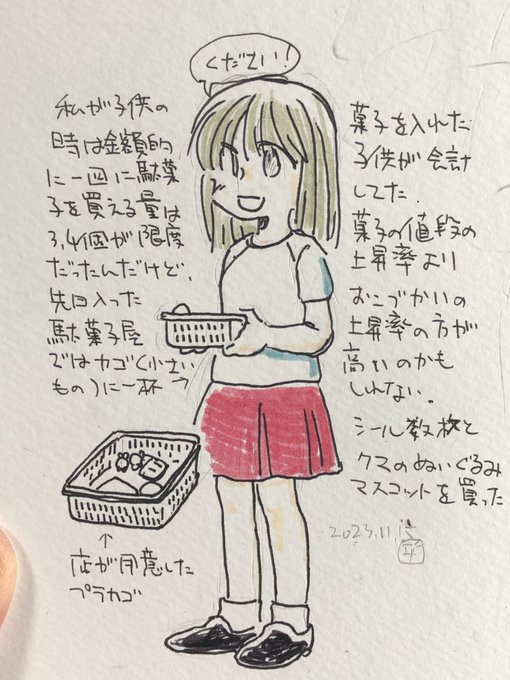 ください!
私が子供の
時は金額的
に一回に駄菓
子を買える量は
3,4個が限度
だったんだけど、
先日入った
駄菓子屋
ではカゴ(小さい
もの)に一杯→
菓子を入れた
子供が会計
してた.
菓子の値段の
上昇率より
おこづかいの
上昇率の方が
高いのかも
しれない.
シール数枚と
クマのぬいぐるみ
マスコットを買った
↑
店が用意した
プラカゴ
2023.11.15